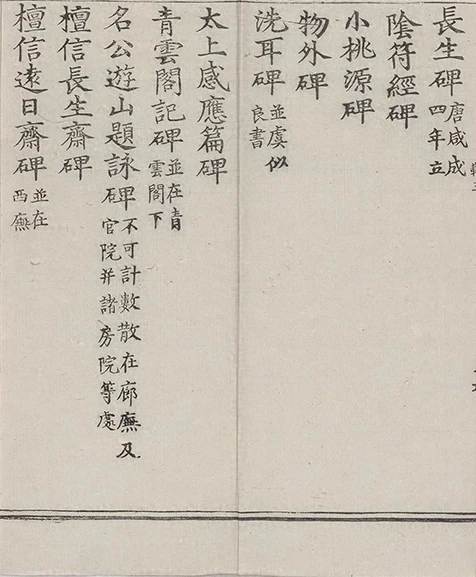 長生碑唐咸成四年立
陰符經碑
小桃源碑
物外碑
洗耳碑並虞似良書
太上感應篇碑
青雲閣記碑並在青雲閣下
名公遊山題詠碑不可計數散在廊廡及官院并諸房院等處
檀信長生齋碑
檀信遠日齋碑並在西廡